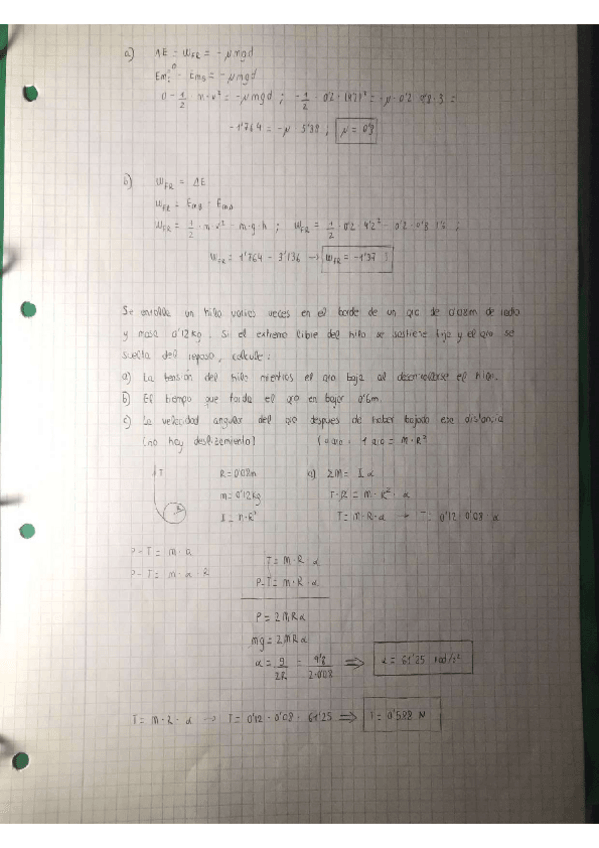 a) ΔE = WFR = -μmgd
Emf⁰ - Em0 = -μmgd
0 - 1/2 m·v² = -μmgd ; -1/2 · 0'2 · (4'2)² = -μ · 0'2 · 9'8 · 3 =
-1'764 = -μ · 5'38 ; μ = 0'3
b) WFR = ΔE
WFR = EmB - EmA
WFR = 1/2 · m · v² - m·g·h ; WFR = 1/2 · 0'2 · 4'2² - 0'2 · 9'8 · 1'6 ;
WFR = 1'764 - 3'136 → WFR = -1'37 J
Se enrolla un hilo varias veces en el borde de un aro de 0'08m de radio
y masa 0'12 kg. Si el extremo libre del hilo se sostiene fijo y el aro se
suelta del reposo, calcule:
a) La tensión del hilo mientras el aro baja al desenrollarse el hilo.
b) El tiempo que tarda el aro en bajar 0'6m.
c) La velocidad angular del aro despues de haber bajado esa distancia
(no hay deslizamiento) I aro = M·R²
T R = 0'08m a) ΣM = I α
R m = 0'12 kg T·R = m·R² · α
I = m·R² T = m·R·α → T = 0'12 · 0'08 α
P-T = m·a
P-T = m·α·R
T = m·R·α
P-T = m·R·α
P = 2mRα
mg = 2mRα
α = g/2R = 9'8/2·0'08 ⇒ α = 61'25 rad/s²
T = m·R·α → T = 0'12 · 0'08 · 61'25 ⇒ T = 0'588 N